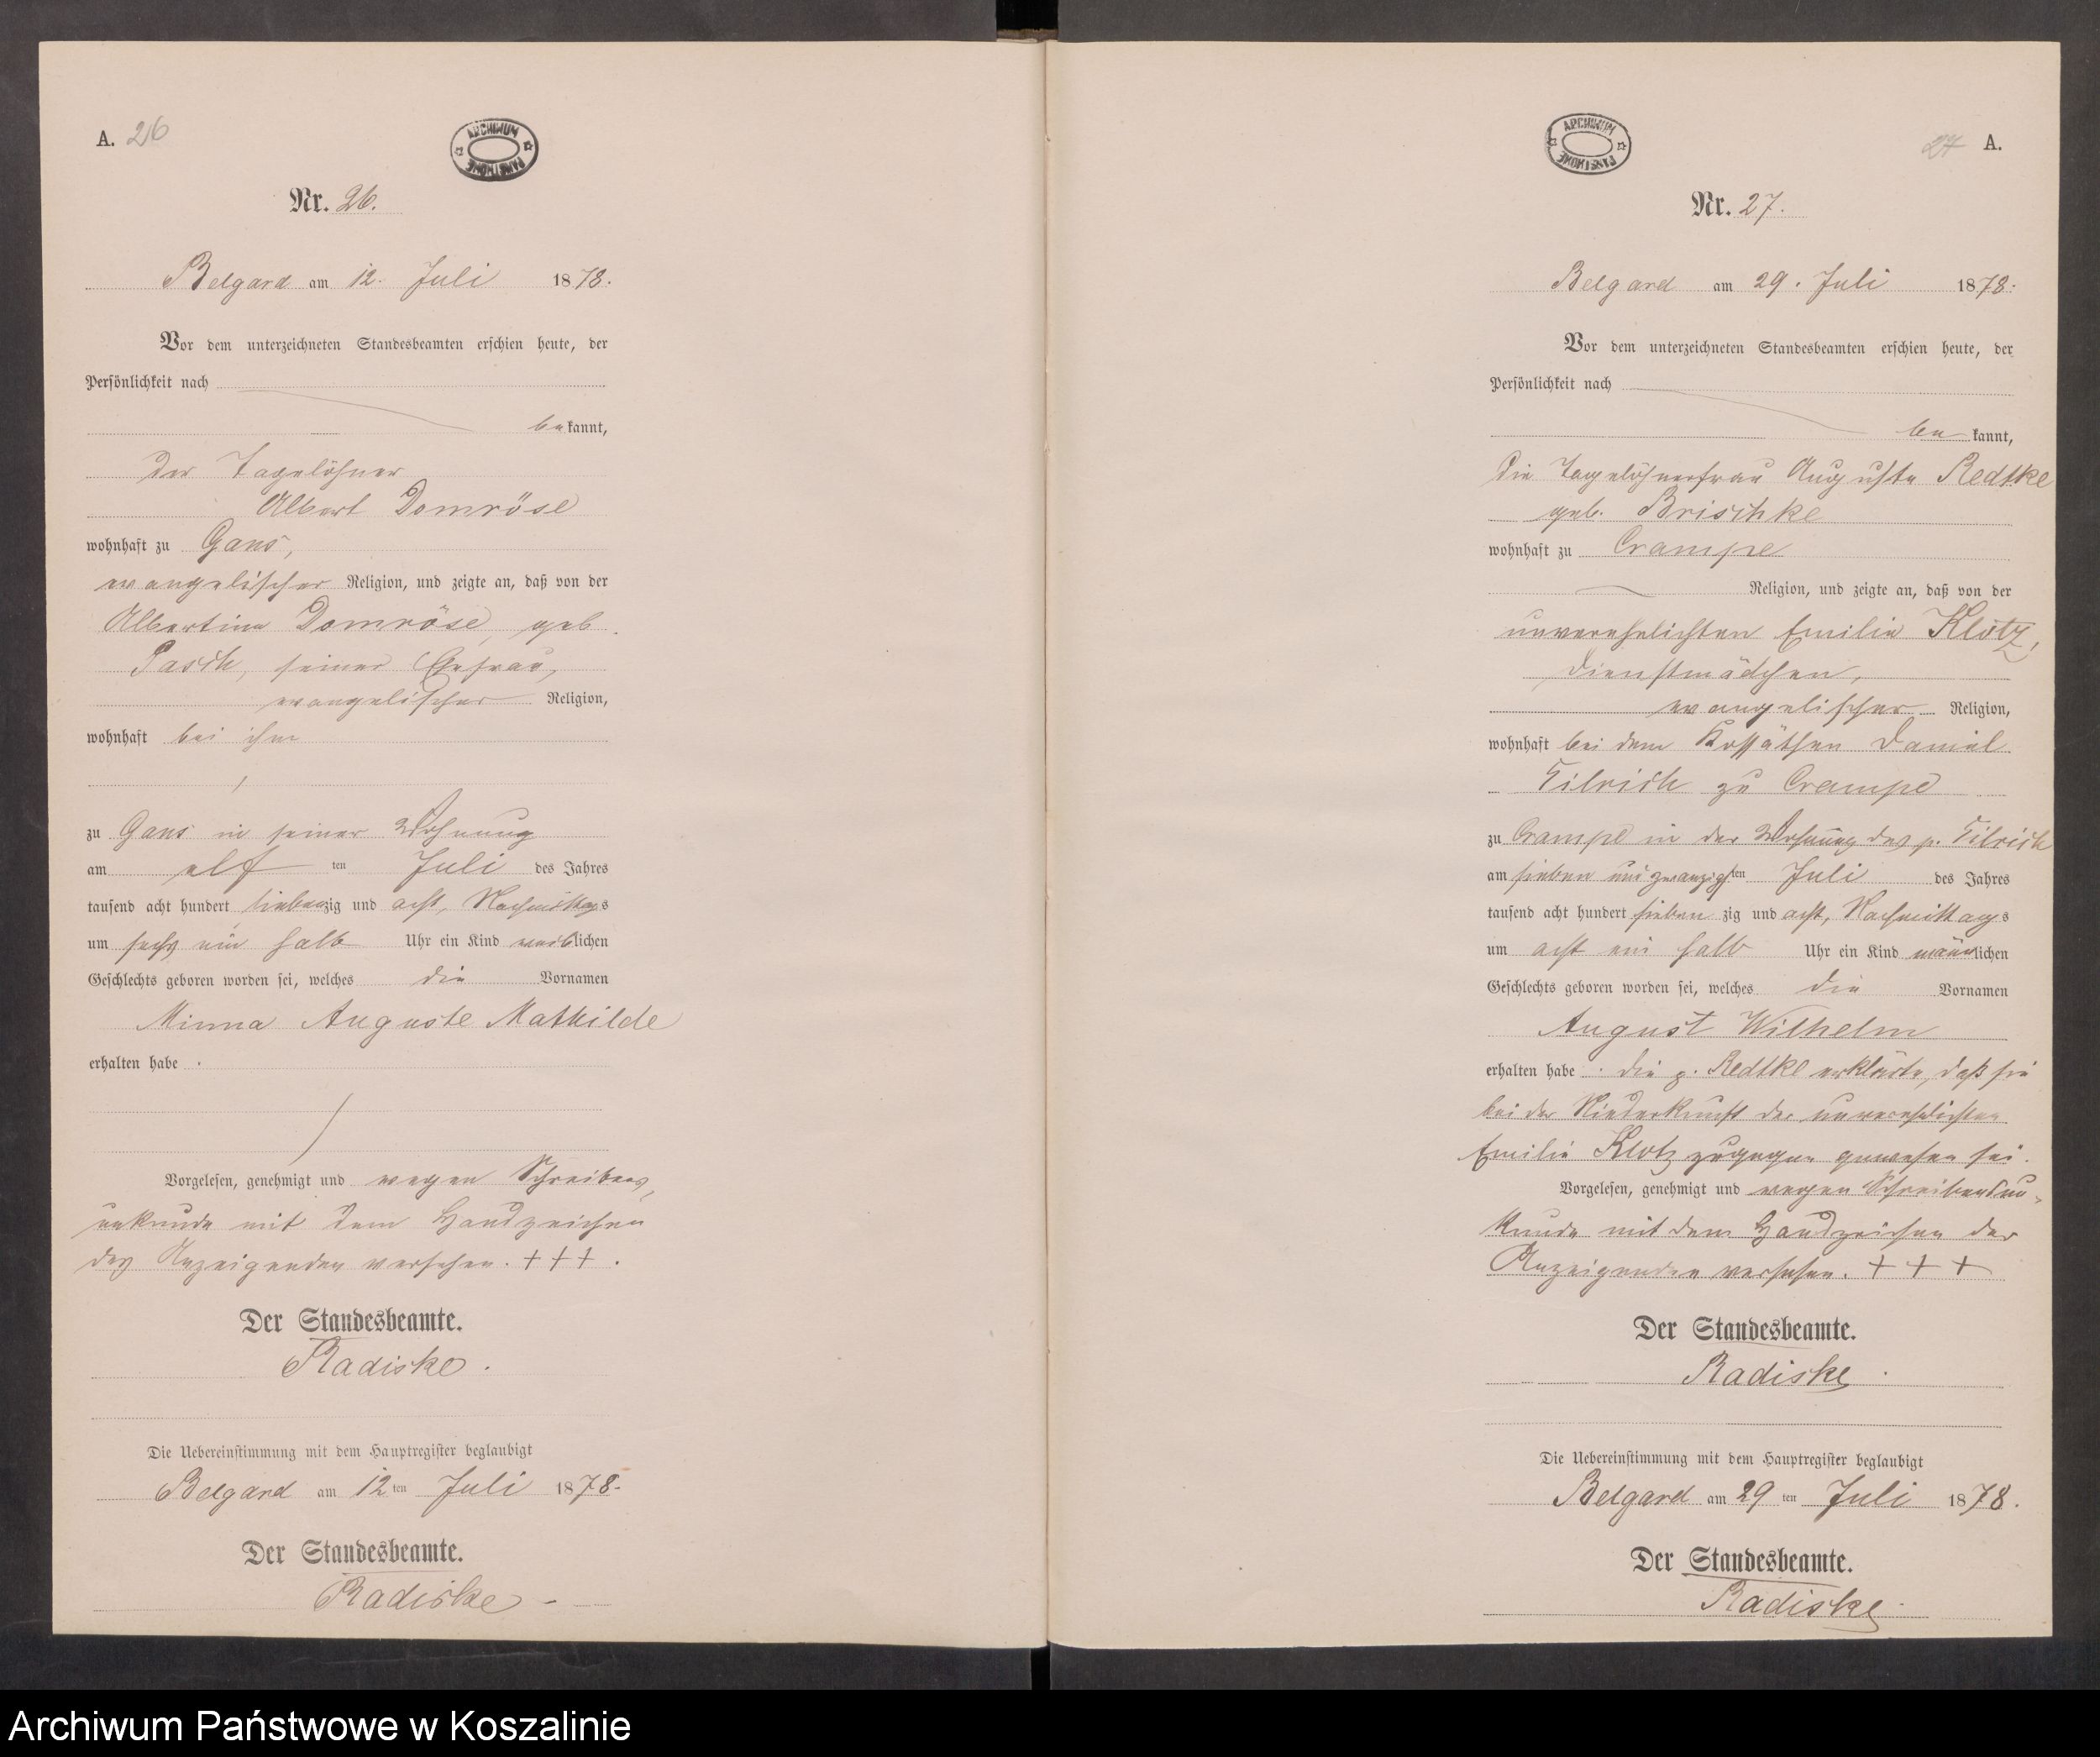 A. 26
ARCHIWUM
PAŃSTWOWE
Nr. 26.
Belgard am 12. Juli 1878.
Vor dem unterzeichneten Standesbeamten erschien heute, der
Persönlichkeit nach
bekannt,
der Tagelöhner
Albert Domröse
wohnhaft zu Gans,
evangelischer Religion, und zeigte an, daß von der
Albertine Domröse, geb.
Pasch, seiner Ehefrau,
evangelischer Religion,
wohnhaft bei ihm
zu Gans in seiner Wohnung
am elf ten Juli des Jahres
tausend acht hundert siebenzig und acht, Nachmittags
um sechs ein halb Uhr ein Kind weiblichen
Geschlechts geboren worden sei, welches die Vornamen
Minna Auguste Mathilde
erhalten habe.
Vorgelesen, genehmigt und wegen Schreibens-
unkunde mit dem Handzeichen
des Anzeigenden versehen. +++.
Der Standesbeamte.
Radiske.
Die Uebereinstimmung mit dem Hauptregister beglaubigt
Belgard am 12ten Juli 1878.
Der Standesbeamte.
Radiske
27 A.
ARCHIWUM
PAŃSTWOWE
Nr. 27.
Belgard am 29. Juli 1878.
Vor dem unterzeichneten Standesbeamten erschien heute, der
Persönlichkeit nach
be kannt,
die Tagelöhnerfrau Auguste Redtke
geb. Brischke
wohnhaft zu Crampe
Religion, und zeigte an, daß von der
unverehelichten Emilie Klotz,
Dienstmädchen,
evangelischer Religion,
wohnhaft bei dem Kossäthen Daniel
Tilrich zu Crampe
zu Crampe in der Wohnung des p. Tilrich
am sieben und zwanzigsten Juli des Jahres
tausend acht hundert siebenzig und acht, Nachmittags
um acht ein halb Uhr ein Kind männlichen
Geschlechts geboren worden sei, welches die Vornamen
August Wilhelm
erhalten habe. Die p. Redtke erklärte, daß sie
bei der Niederkunft der unverehelichten
Emilie Klotz zugegen gewesen sei.
Vorgelesen, genehmigt und wegen Schreibensun-
kunde mit dem Handzeichen der
Anzeigenden versehen. + + +
Der Standesbeamte.
Radiske.
Die Uebereinstimmung mit dem Hauptregister beglaubigt
Belgard am 29 ten Juli 1878.
Der Standesbeamte.
Radiske
Archiwum Państwowe w Koszalinie